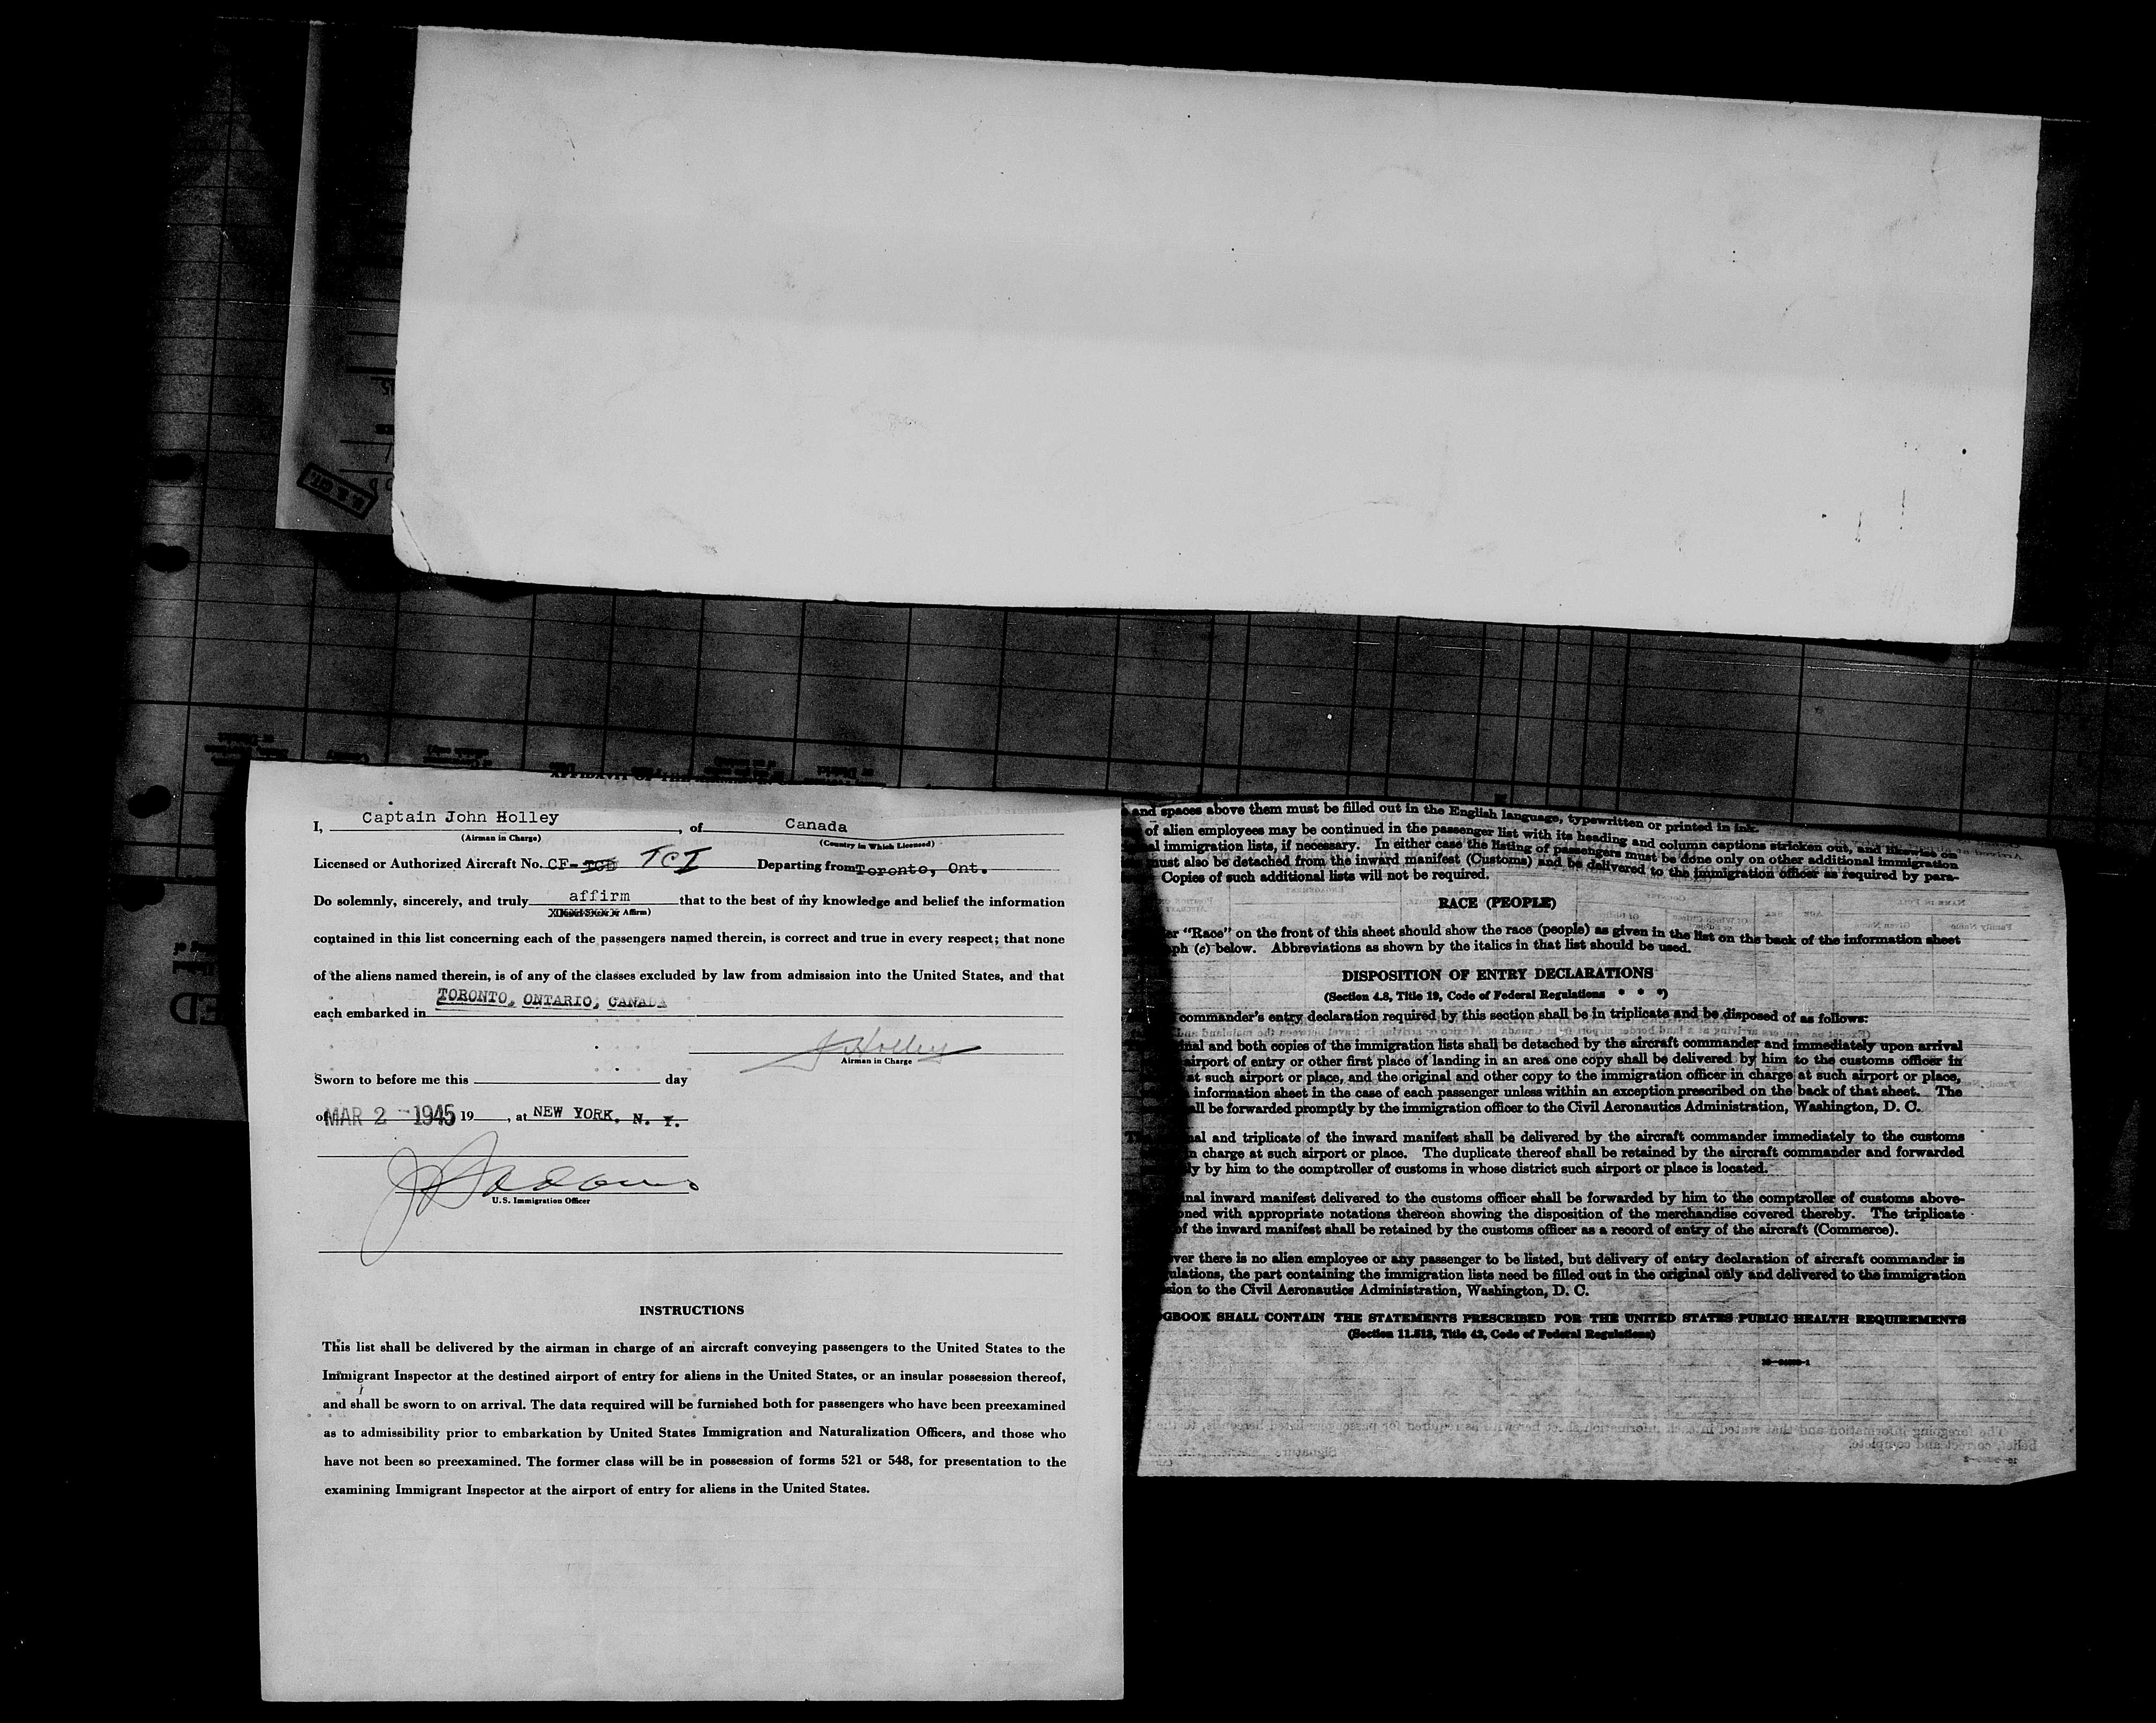 I, Captain John Holley, of Canada
(Airman in Charge) (Country in Which Licensed)
Licensed or Authorized Aircraft No. CF- TCI Departing from Toronto, Ont.
Do solemnly, sincerely, and truly affirm that to the best of my knowledge and belief the information
Affirm)
contained in this list concerning each of the passengers named therein, is correct and true in every respect; that none
of the aliens named therein, is of any of the classes excluded by law from admission into the United States, and that
each embarked in TORONTO, ONTARIO, CANADA
J Holley
Airman in Charge
Sworn to before me this day
of MAR 2 - 1945 19 , at NEW YORK, N. Y.
U.S. Immigration Officer
INSTRUCTIONS
This list shall be delivered by the airman in charge of an aircraft conveying passengers to the United States to the
Immigrant Inspector at the destined airport of entry for aliens in the United States, or an insular possession thereof,
and shall be sworn to on arrival. The data required will be furnished both for passengers who have been preexamined
as to admissibility prior to embarkation by United States Immigration and Naturalization Officers, and those who
have not been so preexamined. The former class will be in possession of forms 521 or 548, for presentation to the
examining Immigrant Inspector at the airport of entry for aliens in the United States.
and spaces above them must be filled out in the English language, typewritten or printed in ink.
of alien employees may be continued in the passenger list with its heading and column captions stricken out, and likewise on
immigration lists, if necessary. In either case the listing of passengers must be done only on other additional immigration
must also be detached from the inward manifest (Customs) and be delivered to the immigration officer as required by para-
Copies of such additional lists will not be required.
RACE (PEOPLE)
"Race" on the front of this sheet should show the race (people) as given in the list on the back of the information sheet
(c) below. Abbreviations as shown by the italics in that list should be used.
DISPOSITION OF ENTRY DECLARATIONS
(Section 4.8, Title 19, Code of Federal Regulations * * *)
commander's entry declaration required by this section shall be in triplicate and be disposed of as follows:
and both copies of the immigration lists shall be detached by the aircraft commander and immediately upon arrival
airport of entry or other first place of landing in an area one copy shall be delivered by him to the customs officer in
at such airport or place, and the original and other copy to the immigration officer in charge at such airport or place,
information sheet in the case of each passenger unless within an exception prescribed on the back of that sheet. The
be forwarded promptly by the immigration officer to the Civil Aeronautics Administration, Washington, D. C.
and triplicate of the inward manifest shall be delivered by the aircraft commander immediately to the customs
in charge at such airport or place. The duplicate thereof shall be retained by the aircraft commander and forwarded
by him to the comptroller of customs in whose district such airport or place is located.
inward manifest delivered to the customs officer shall be forwarded by him to the comptroller of customs above-
with appropriate notations thereon showing the disposition of the merchandise covered thereby. The triplicate
of the inward manifest shall be retained by the customs officer as a record of entry of the aircraft (Commerce).
there is no alien employee or any passenger to be listed, but delivery of entry declaration of aircraft commander is
the part containing the immigration lists need be filled out in the original only and delivered to the immigration
to the Civil Aeronautics Administration, Washington, D. C.
SHALL CONTAIN THE STATEMENTS PRESCRIBED FOR THE UNITED STATES PUBLIC HEALTH REQUIREMENTS
(Section 11.512, Title 42, Code of Federal Regulations)